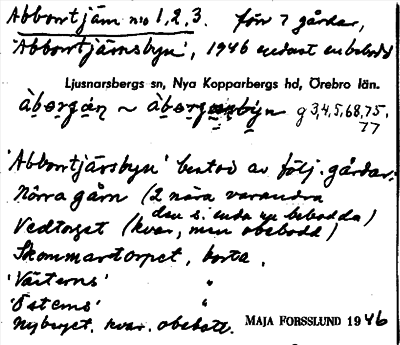 Abborrtjärn nio 1, 2, 3. förr 7 gårdar,
'Abborrtjärnsbyn', 1946 endast en bebodd
Ljusnarsbergs sn, Nya Kopparbergs hd, Örebro län.
g 3,4,5,68,75.
77
'Abborrtjärsbyn' bestod av följ. gårdar:
Norra gårn (2 nära varandra
den s. enda nu bebodda)
Vedtorpet (kvar, men obebodd)
Skommartorpet, borta.
'Västerns' "
'Österns' "
Nybyget, kvar. obebott.
MAJA FORSSLUND 1946